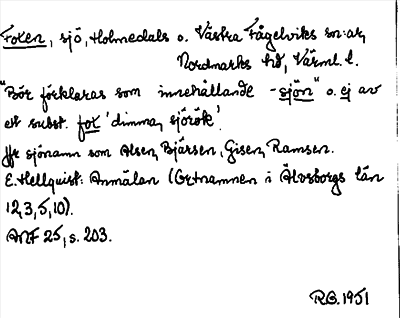 Foxen, sjö, Holmedals o. Västra Fågelviks sn:ar,
Nordmarks hd, Värml. l.
"Bör förklaras som innehållande -sjön" o. ej av
ett subst. fox 'dimma, sjörök'.
Jfr sjönamn som Alsen, Bjärsen, Gisen, Ramsen.
E. Hellquist: Anmälan (Ortnamnen i Älvsborgs län
12,3,5,10).
ANF 25, s. 203.
R.G. 1951